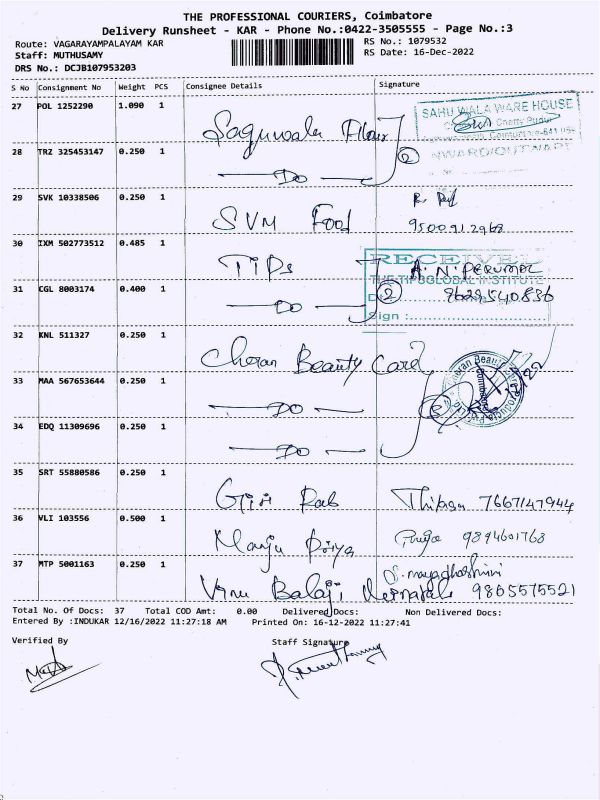 THE PROFESSIONAL COURIERS, Coimbatore
Delivery Runsheet - KAR - Phone No.:0422-3505555 - Page No.:3
Route: VAGARAYAMPALAYAM KAR
RS No.: 1079532
Staff: MUTHUSAMY
RS Date: 16-Dec-2022
DRS No.: DCJB107953203
S No Consignment No Weight PCS Consignee Details Signature
27 POL 1252290 1.090 1
SAHU WALA WARE HOUSE
28 TRZ 325453147 0.250 1
Do
29 SVK 10338506 0.250 1
SVM Food
9500912968
30 IXM 502773512 0.485 1
TIPs
RECEIVED
A. N. PERUMAL
THE TIPSGLOBAL INSTITUTE
31 CGL 8003174 0.400 1
Do
2
9629540836
Sign :
32 KNL 511327 0.250 1
Cheran Beauty Care
33 MAA 567653644 0.250 1
Do
34 EDQ 11309696 0.250 1
Do
35 SRT 55880586 0.250 1
Giri 7667147944
36 VLI 103556 0.500 1
Manju Priya 9894601768
37 MTP 5001163 0.250 1
Balaji 9865575521
Total No. Of Docs: 37 Total COD Amt: 0.00 Delivered Docs: Non Delivered Docs:
Entered By :INDUKAR 12/16/2022 11:27:18 AM Printed On: 16-12-2022 11:27:41
Verified By Staff Signature